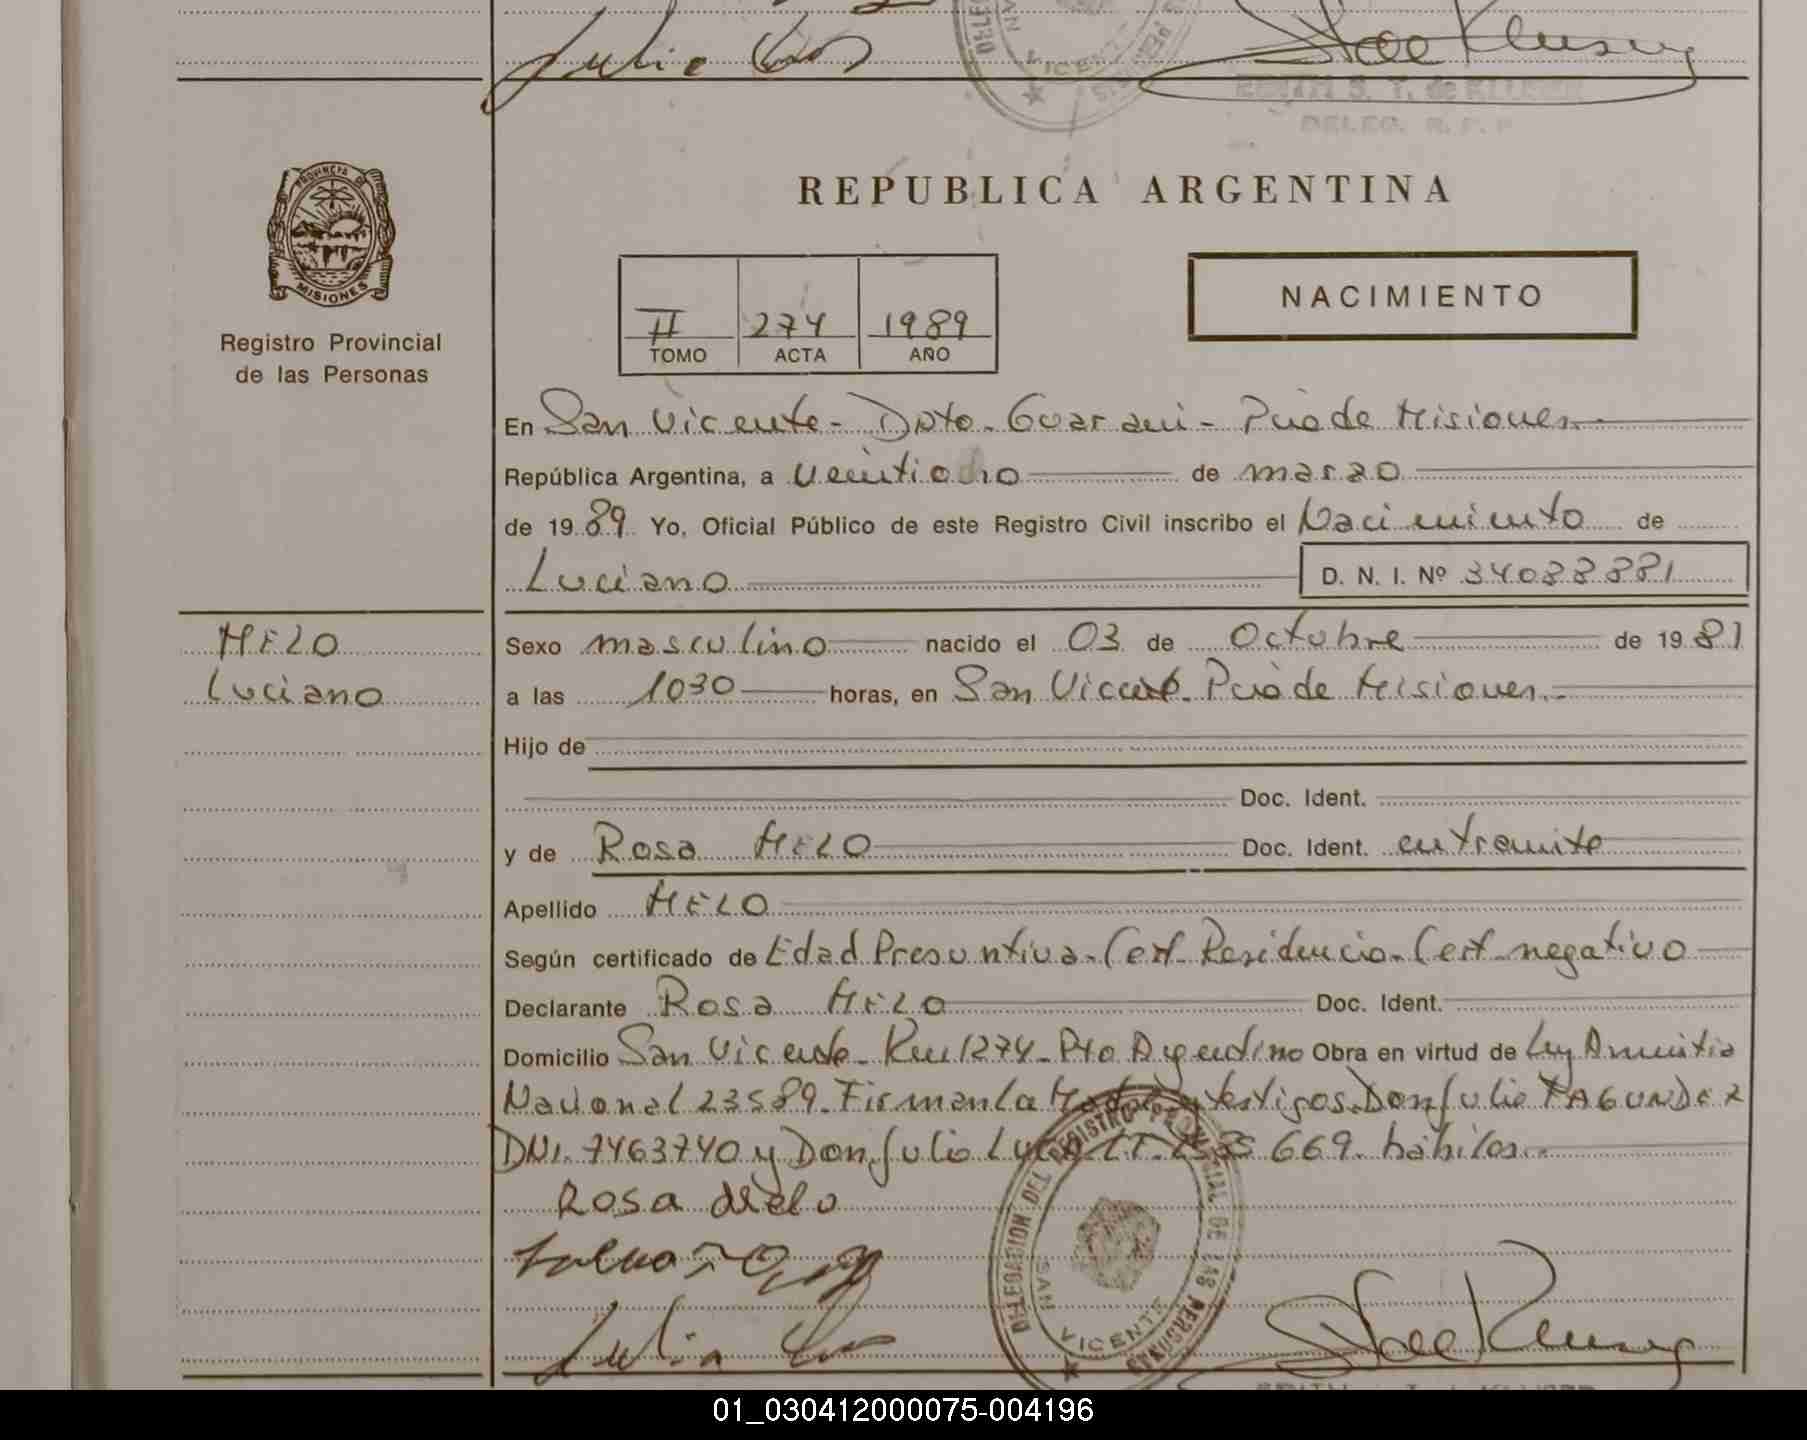 Julio
DELEG
SAN VICENTE
EDITH S. T. de KLUSENER
DELEG. R. P. P
PROVINCIA DE
MISIONES
Registro Provincial
de las Personas
REPUBLICA ARGENTINA
II 274 1989
TOMO ACTA AÑO
NACIMIENTO
En San Vicente - Dpto. Guarani - Pcia de Misiones
República Argentina, a veintiocho de marzo
de 1989 Yo, Oficial Público de este Registro Civil inscribo el Nacimiento de
Luciano D. N. I. Nº 34088881
MELO
Luciano
Sexo masculino nacido el 03 de Octubre de 1981
a las 1030 horas, en San Vicente. Pcia de Misiones.
Hijo de
Doc. Ident.
y de Rosa MELO Doc. Ident. en tramite
Apellido MELO
Según certificado de Edad Presuntiva. Cert. Residencia. Cert. negativo
Declarante Rosa MELO Doc. Ident.
Domicilio San Vicente Km 1274 - Pto Argentino Obra en virtud de Ley Amnistia
Nacional 23589. Firman la Madre y testigos Don Julio FAGUNDEZ
DNI. 7463740 y Don Julio 669. hábiles.
Rosa Melo
Julio
DELEGACION DEL REGISTRO PROVINCIAL DE LAS PERSONAS
SAN VICENTE
01_030412000075-004196